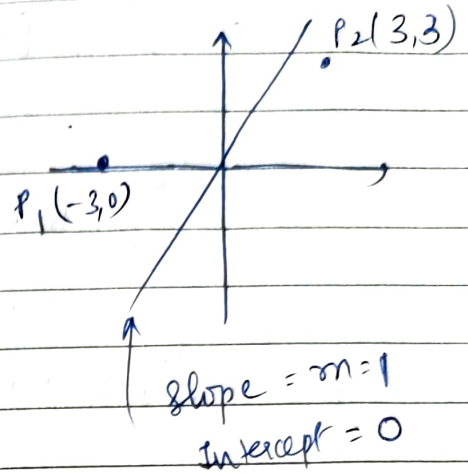 P₂(3,3)
P₁(-3,0)
Slope = m = 1
Intercept = 0